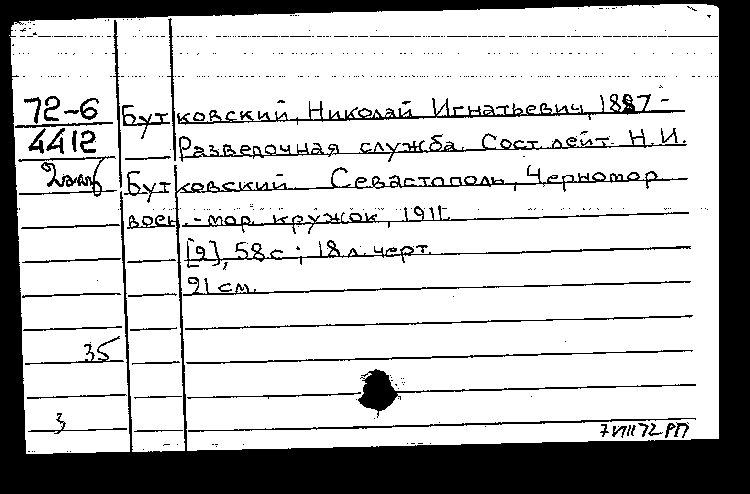 72-6 Бутковский, Николай Игнатьевич, 1887-
4412 Разведочная служба. Сост. лейт. Н. И.
Бутковский Севастополь, Черномор
воен.-мор. кружок, 1911.
[2], 58 с; 18 л. черт.
21 см.
35
3
7 VIII 72 РП